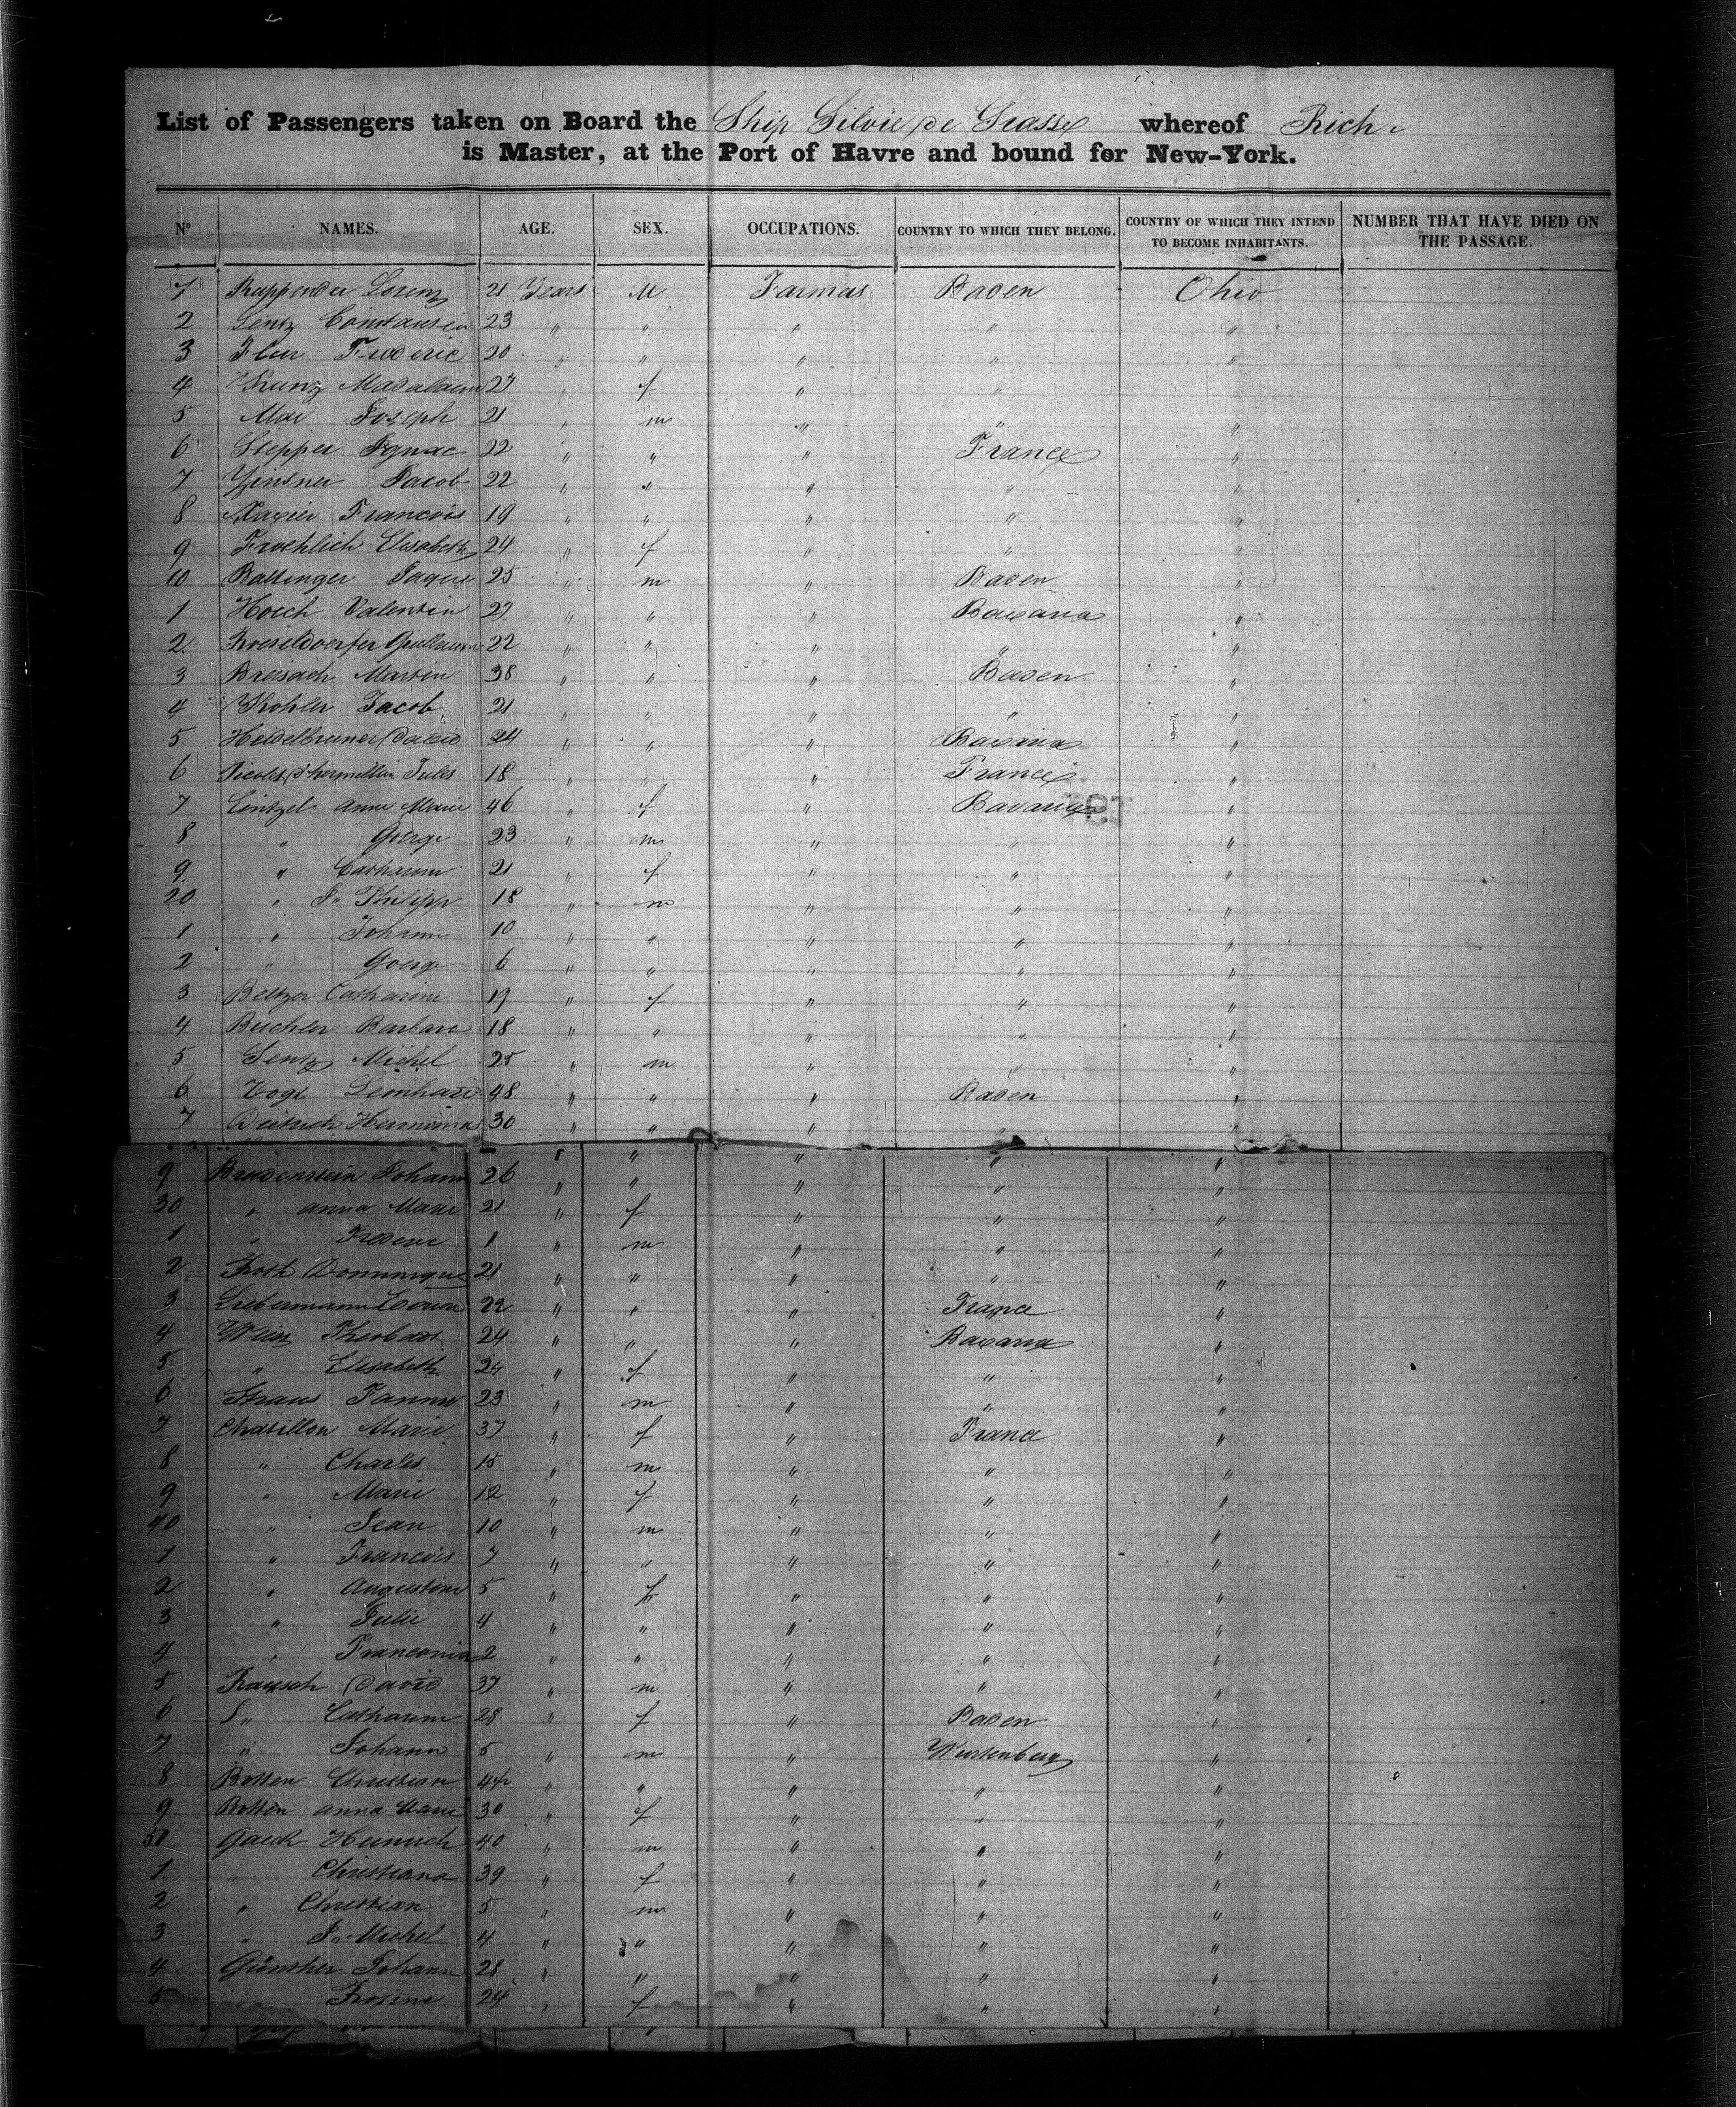 List of Passengers taken on Board the Ship Silvie de Grasse whereof Rich
is Master, at the Port of Havre and bound for New-York.
Nº NAMES. AGE. SEX. OCCUPATIONS. COUNTRY TO WHICH THEY BELONG. COUNTRY OF WHICH THEY INTEND TO BECOME INHABITANTS. NUMBER THAT HAVE DIED ON THE PASSAGE.
1 Lorenz 21 Years M Farmers Baden Ohio
2 Lentz 23 " " " " "
3 Frederic 20 " " " " "
4 27 " f " "
5 Mai Joseph 21 " m " " "
6 Stepper Ignac 22 " " " France "
7 Jacob 22 " " " " "
8 Xavier Francois 19 " " " " "
9 Froehlich Elisabeth 24 " f " " "
10 Baltinger Jaque 25 " m " Baden "
1 Hoech Valentin 27 " " " Bavaria "
2 22 " " " " "
3 Breisach Martin 38 " " " Baden "
4 Kohler Jacob 21 " " " " "
5 Heidelbruner David 24 " " " Bavaria "
6 Jules 18 " " " France "
7 Lintzel Anna Marie 46 " f " Bavaria "
8 " George 23 " m " " "
9 " Catharina 21 " f " " "
20 " J. Philipp 18 " m " " "
1 " Johann 10 " " " " "
2 " George 6 " " " " "
3 Beltzer Catharine 19 " f " " "
4 Buchler Barbara 18 " " " " "
5 Lentz Michel 25 " m " " "
6 Vogt Leonhard 48 " " " Baden "
7 Dietrich 30 " " " " "
" " " " "
9 Brudenstein Johann 26 " " " " "
30 " anna Marie 21 " f " " "
1 " Frederic 1 " m " " "
2 Roth Dominique 21 " " " " "
3 Liebermann 22 " " " France "
4 24 " " " Bavaria "
5 " Elisabeth 24 " f " " "
6 Straus 23 " m " " "
7 Chatillon Marie 37 " f " France "
8 " Charles 15 " m " " "
9 " Marie 12 " f " " "
40 " Jean 10 " m " " "
1 " Francois 7 " " " " "
2 " Augustine 5 " f " " "
3 " Julie 4 " " " " "
4 " 2 " " " " "
5 Rausch David 37 " m " " "
6 " Catharine 28 " f " Baden "
7 " Johann 5 " m " Wurtenberg "
8 Botten Christian 44 " " " " "
9 Botten anna Marie 30 " f " " "
50 Gaeck Heinrich 40 " m " " "
1 " Christiana 39 " f " " "
2 " Christian 5 " m " " "
3 " J. Michel 4 " " " " "
4 Günther Johann 28 " " " " "
5 " Rosine 24 " f " " "